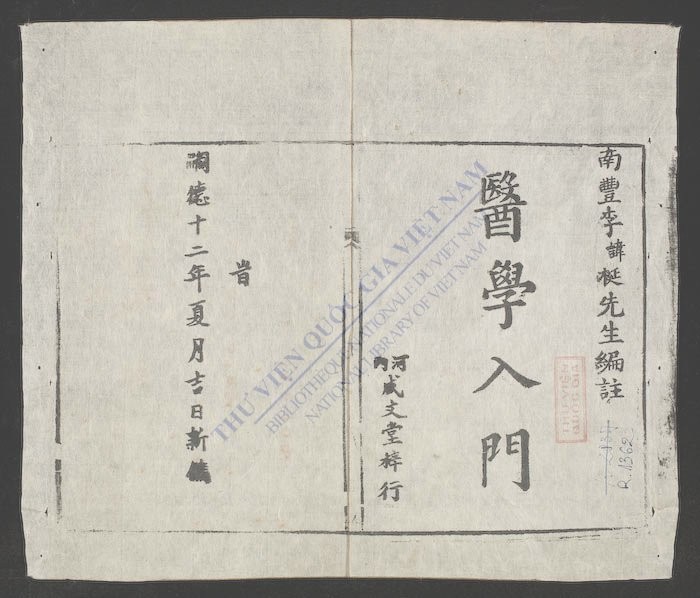 南豐李諱梴先生編註
醫學入門
河內
盛文堂梓行
旹
嗣德十二年夏月吉日新鐫
THƯ VIỆN QUỐC GIA VIỆT NAM
BIBLIOTHÈQUE NATIONALE DU VIETNAM
NATIONAL LIBRARY OF VIETNAM
THƯ VIỆN
QUỐC GIA
R.1362